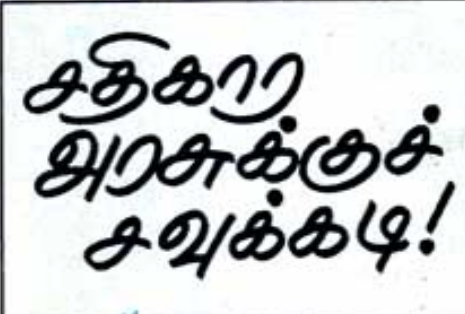 சதிகார
அரசுக்குச்
சவுக்கடி!